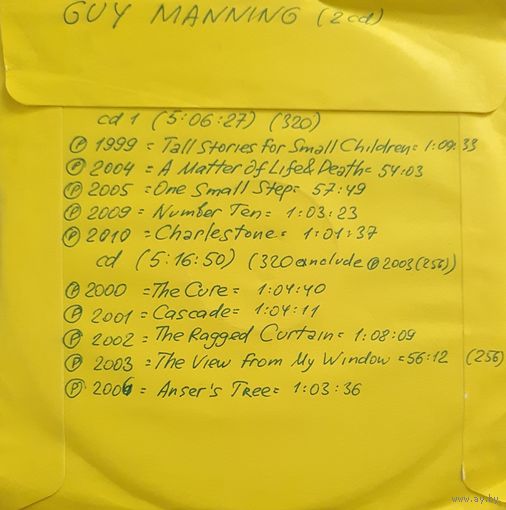 GUY MANNING (2cd)
cd 1 (5:06:27) (320)
Ⓟ 1999 = Tall Stories for Small Children = 1:09:33
Ⓟ 2004 = A Matter Of Life & Death = 54:03
Ⓟ 2005 = One Small Step = 57:49
Ⓟ 2009 = Number Ten = 1:03:23
Ⓟ 2010 = Charlestone = 1:01:37
cd (5:16:50) (320 exclude Ⓟ 2003 (256))
Ⓟ 2000 = The Cure = 1:04:40
Ⓟ 2001 = Cascade = 1:04:11
Ⓟ 2002 = The Ragged Curtain = 1:08:09
Ⓟ 2003 = The View from My Window = 56:12 (256)
Ⓟ 2006 = Anser's Tree = 1:03:36
www.ay.by